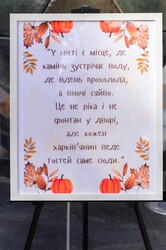 "У місті є місце, де
камінь зустрічає воду,
де вдень прохолода,
а вночі сяйво.
Це не ріка і не
фонтан у дворі,
але кожен
харків'янин веде
гостей саме сюди."